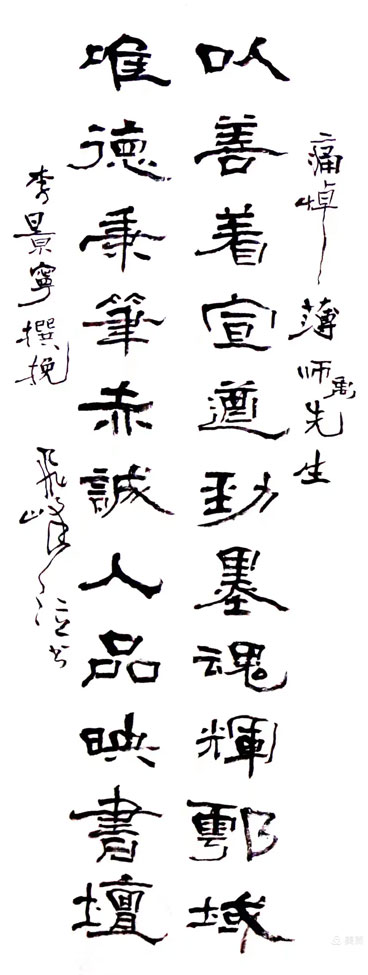 痛悼薄师禹先生
以善着宣遒勁墨魂輝鄠域
唯德秉筆赤誠人品映書壇
李景寧撰挽
飛峰泣书